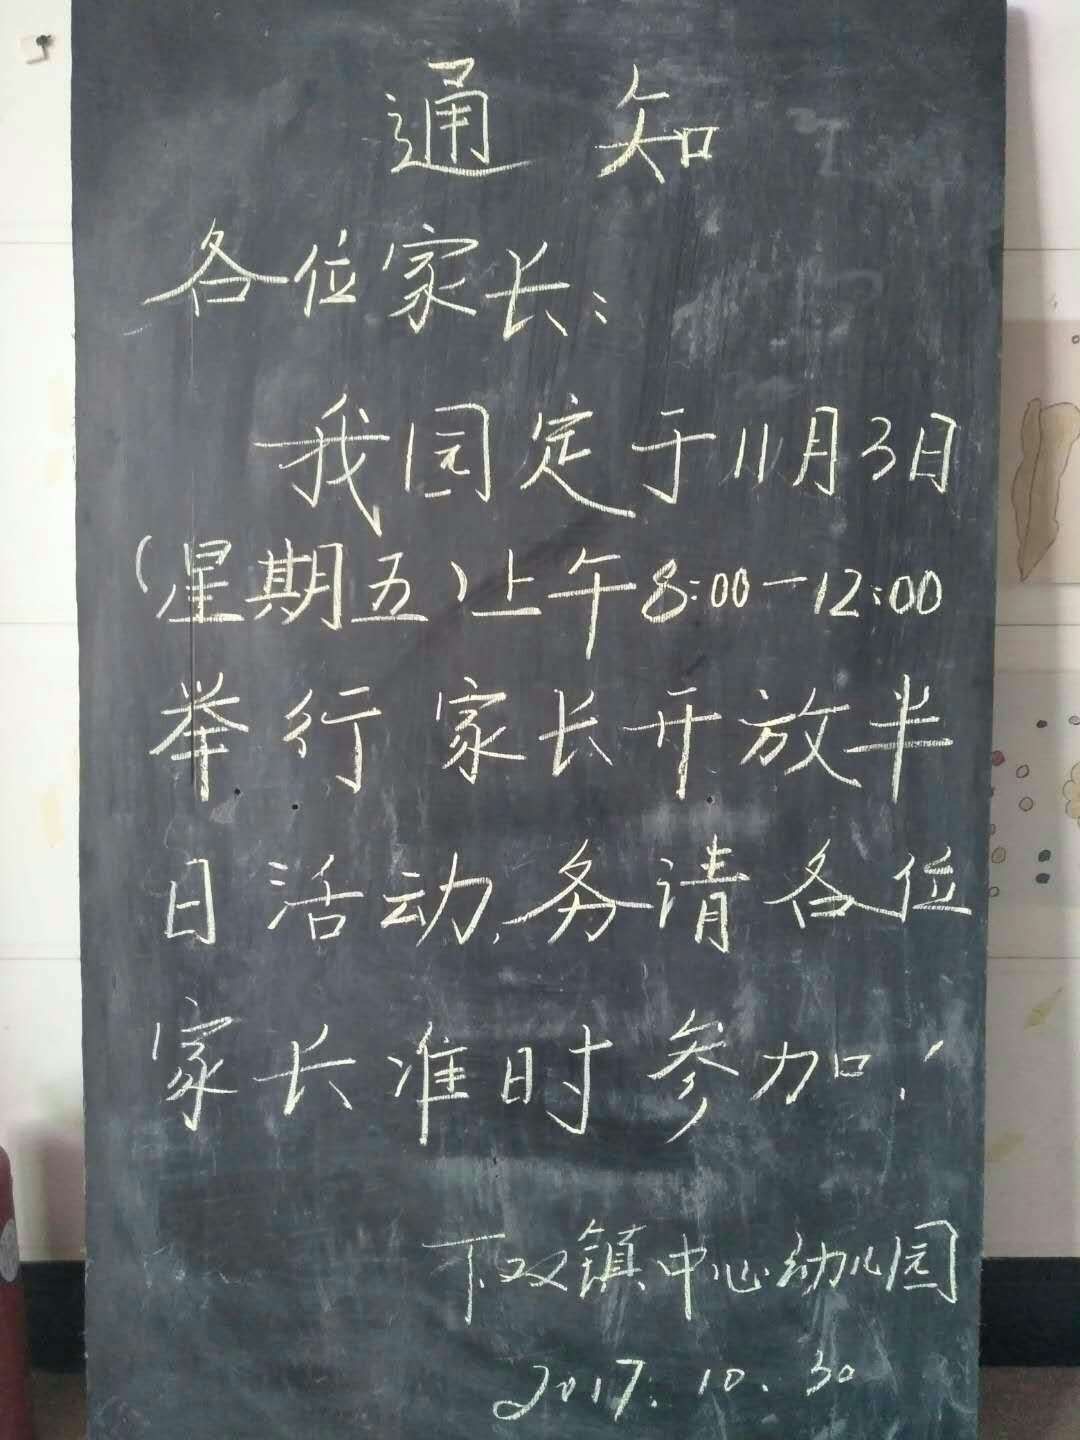 通知
各位家长:
我园定于11月3日
(星期五)上午8:00—12:00
举行家长开放半
日活动,务请各位
家长准时参加!
下双镇中心幼儿园
2017.10.30